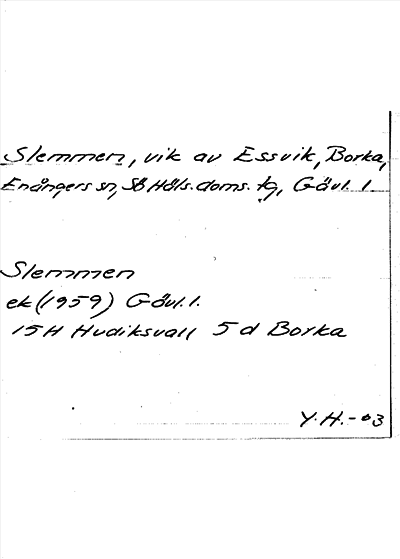 Slemmen, vik av Essvik, Borka,
Enångers sn, SöHäls.doms. tg, Gävl. l.
Slemmen
ek(1959) Gävl.l.
15H Hudiksvall 5d Borka
Y.H.-03